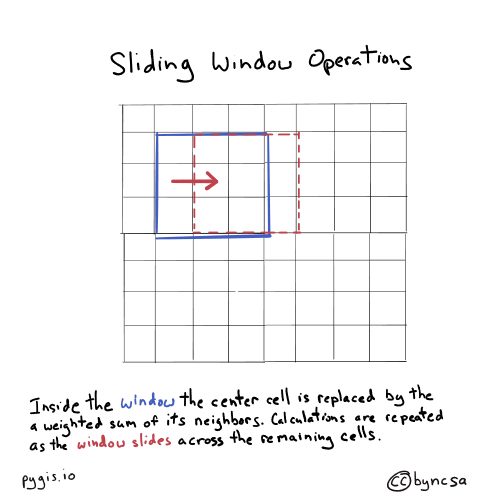 Sliding Window Operations
Inside the window the center cell is replaced by the
a weighted sum of its neighbors. Calculations are repeated
as the window slides across the remaining cells.
pygis.io
cc byncsa